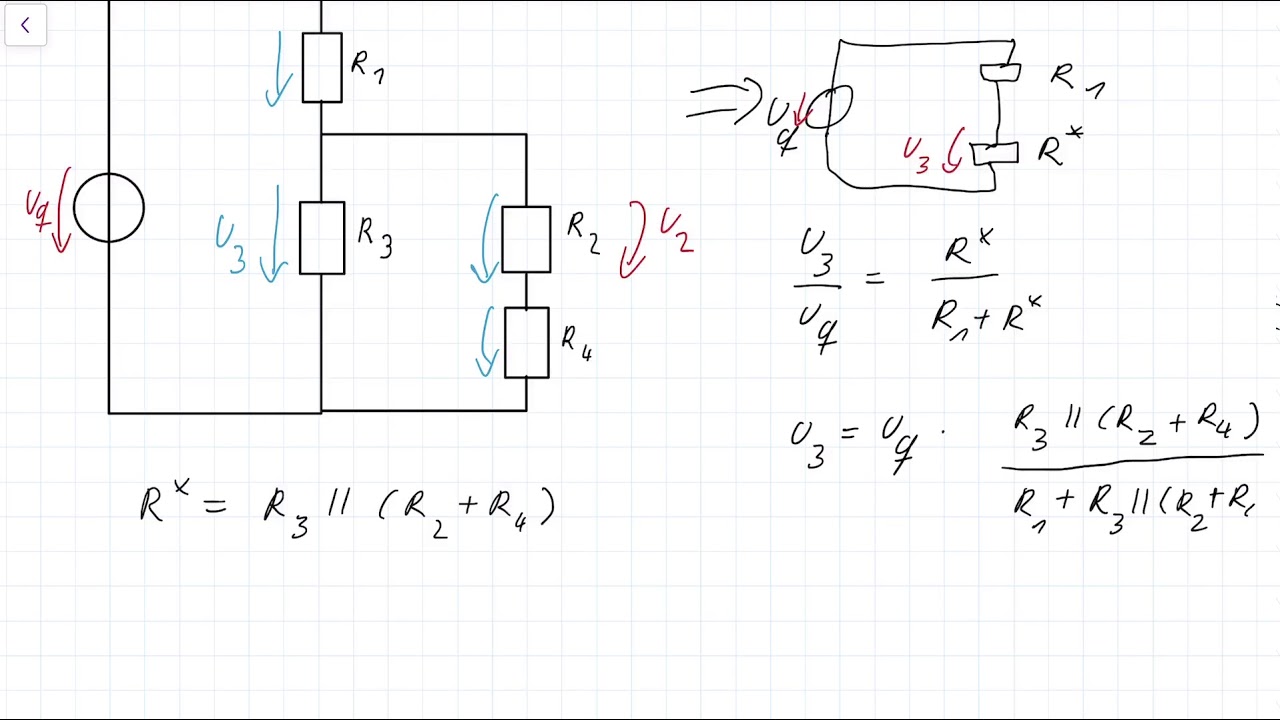 R1
Uq
U3
R3
R2
U2
R4
R* = R3 || (R2 + R4)
⇒
Uq
R1
U3
R*
U3 / Uq = R* / R1 + R*
U3 = Uq · R3 || (R2 + R4) / R1 + R3 || (R2 + R